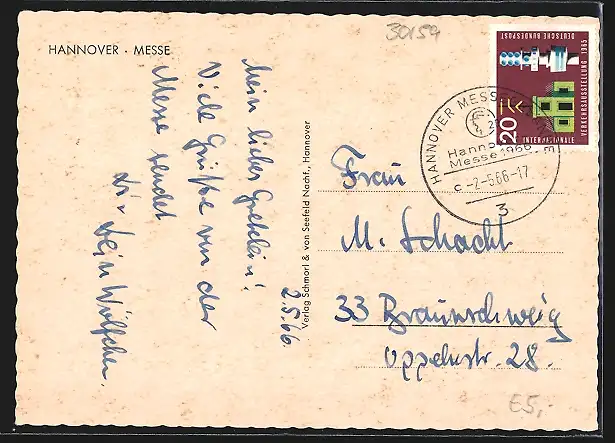 HANNOVER · MESSE
30159
2.5.66.
Mein liebes Gretelein!
Viele Grüße von der
Messe sendet
Dir Dein Wölfchen.
Verlag Schmorl & von Seefeld Nachf., Hannover
DEUTSCHE BUNDESPOST
INTERNATIONALE
VERKEHRSAUSSTELLUNG 1965
20
HANNOVER MESSE
Hann
Messe 1966
c -2.-5.66-17
3
Frau
M. Schacht
33 Braunschweig
Oppelnstr. 28.
E5,-